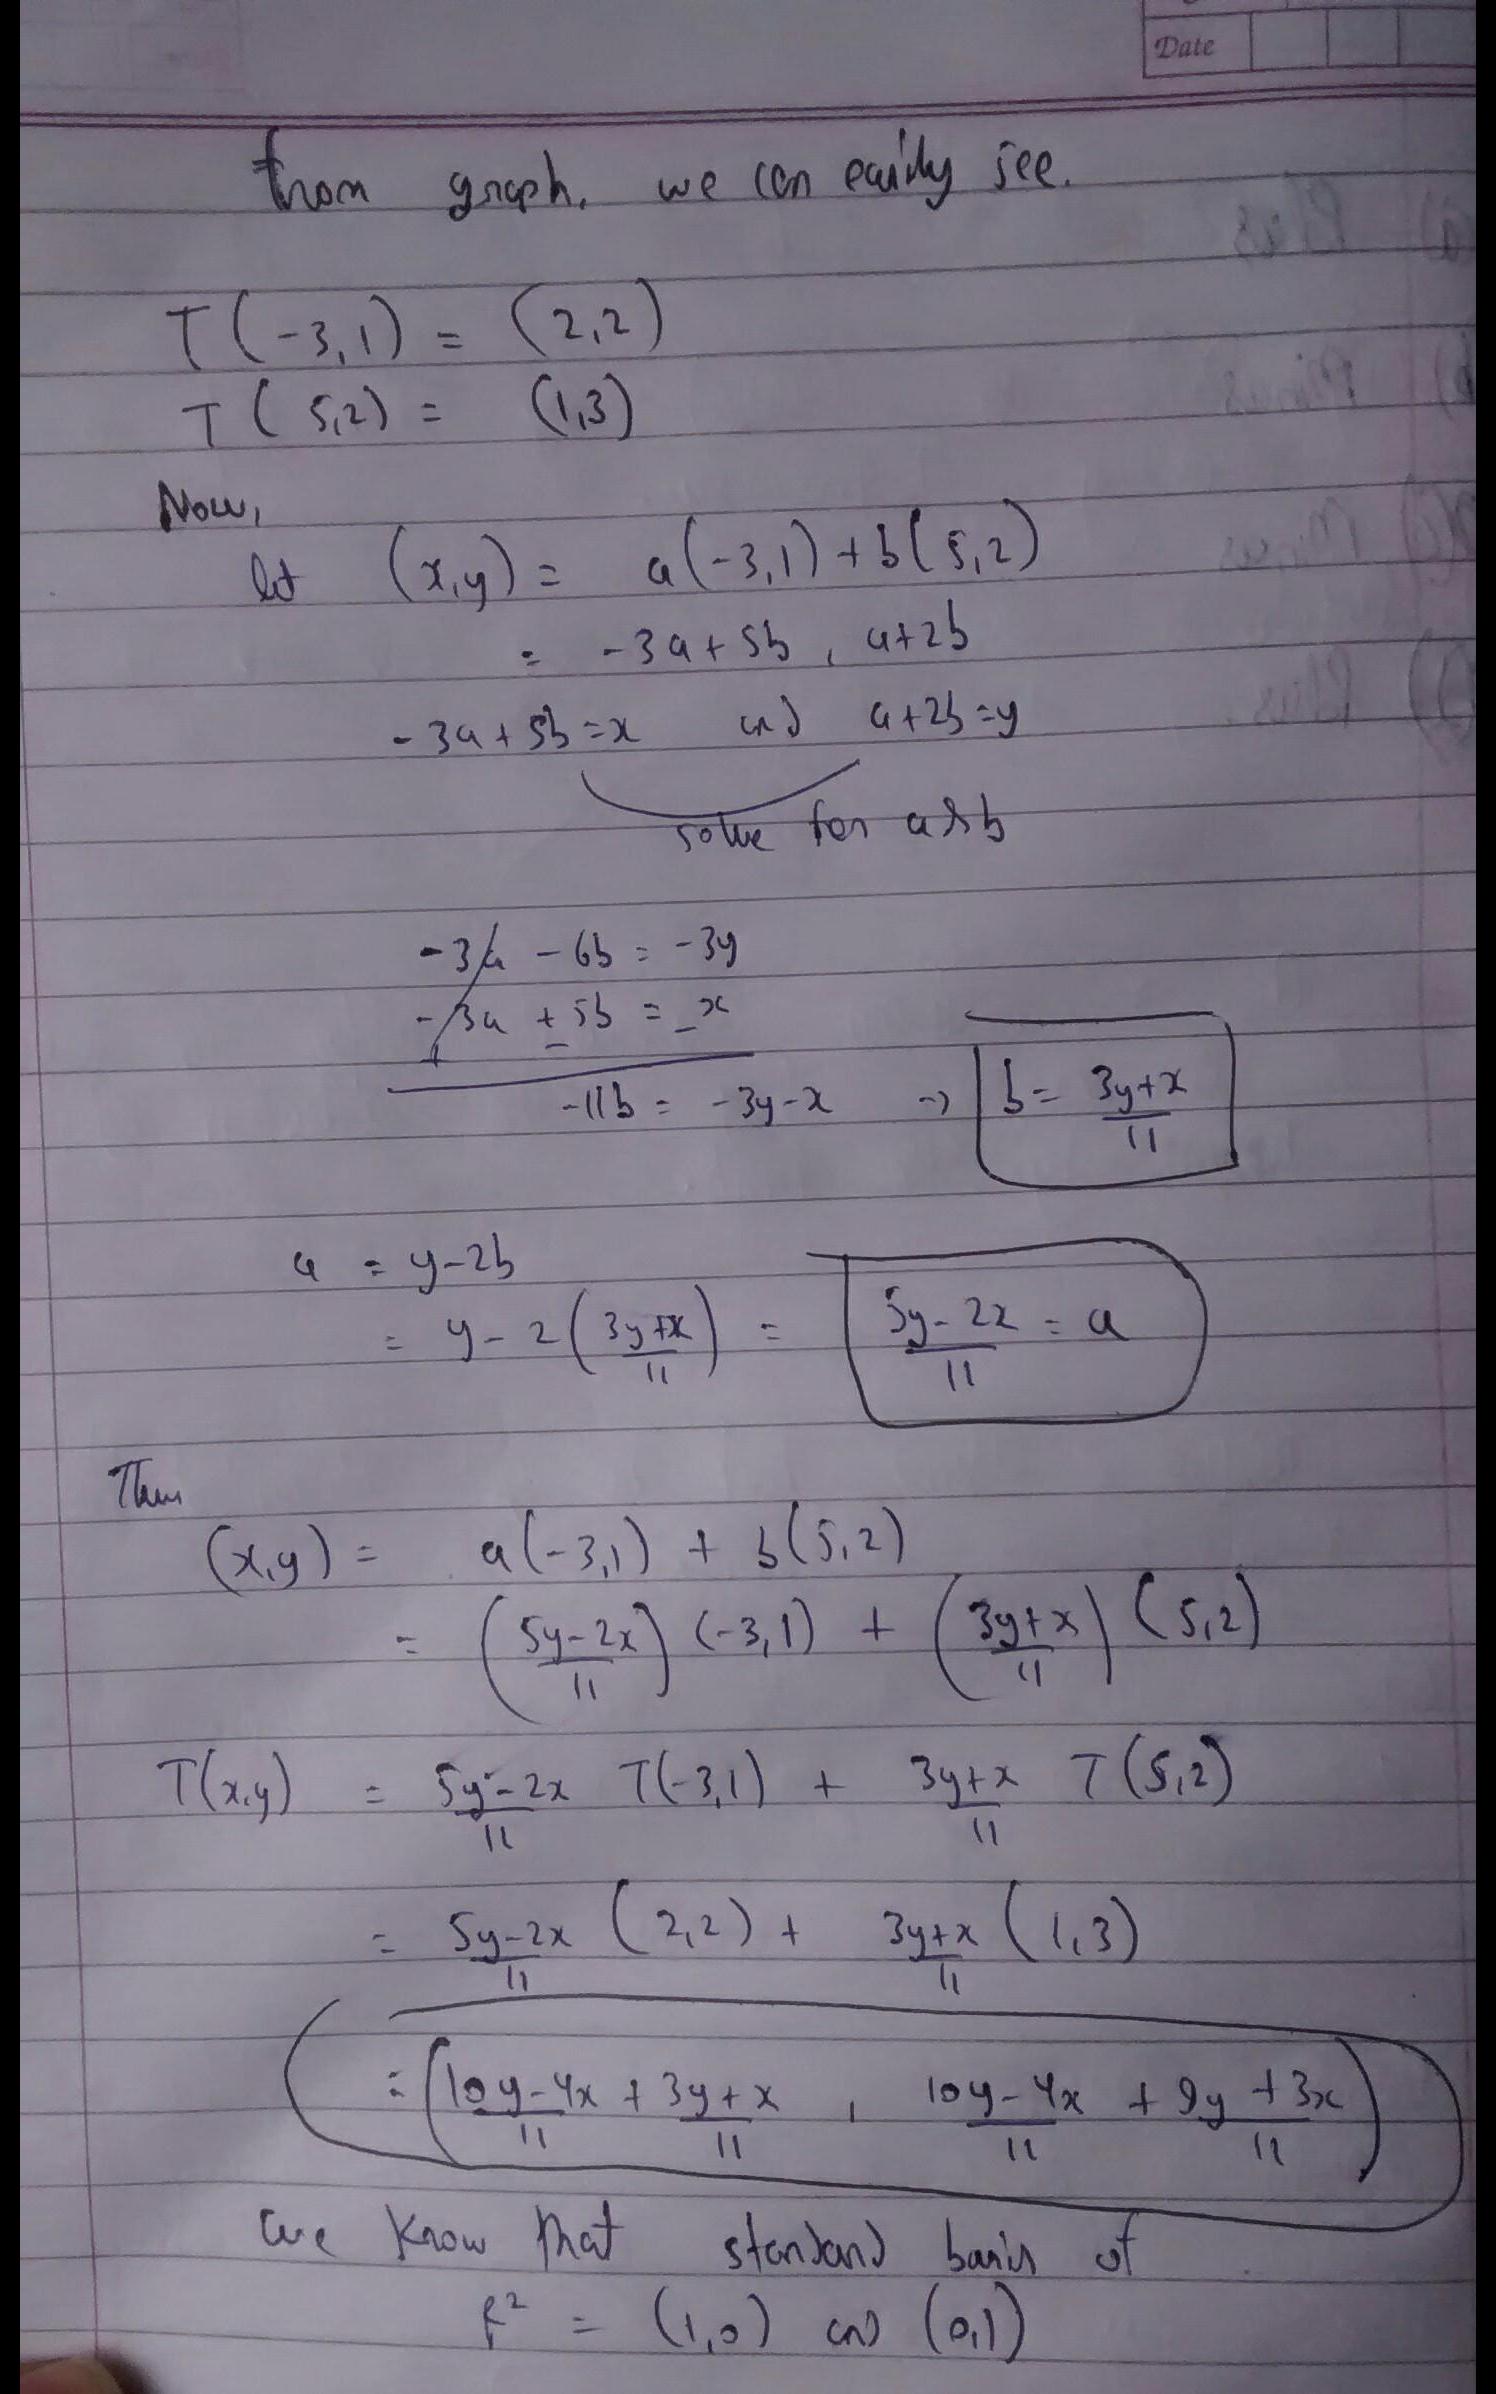 Date
from graph, we can easily see.
T(-3,1) = (2,2)
T(5,2) = (1,3)
Now,
let (x,y) = a(-3,1)+b(5,2)
= -3a+5b, a+2b
-3a+5b=x and a+2b=y
solve for a & b
-3a - 6b = -3y
-3a + 5b = x
+ - -
-11b = -3y-x → b = (3y+x)/11
a = y-2b
= y-2((3y+x)/11) = (5y-2x)/11 = a
Then
(x,y) = a(-3,1) + b(5,2)
= ((5y-2x)/11) (-3,1) + ((3y+x)/11) (5,2)
T(x,y) = (5y-2x)/11 T(-3,1) + (3y+x)/11 T(5,2)
= (5y-2x)/11 (2,2) + (3y+x)/11 (1,3)
= ((10y-4x)/11 + (3y+x)/11 , (10y-4x)/11 + (9y+3x)/11)
we know that standard basis of
R² = (1,0) and (0,1)